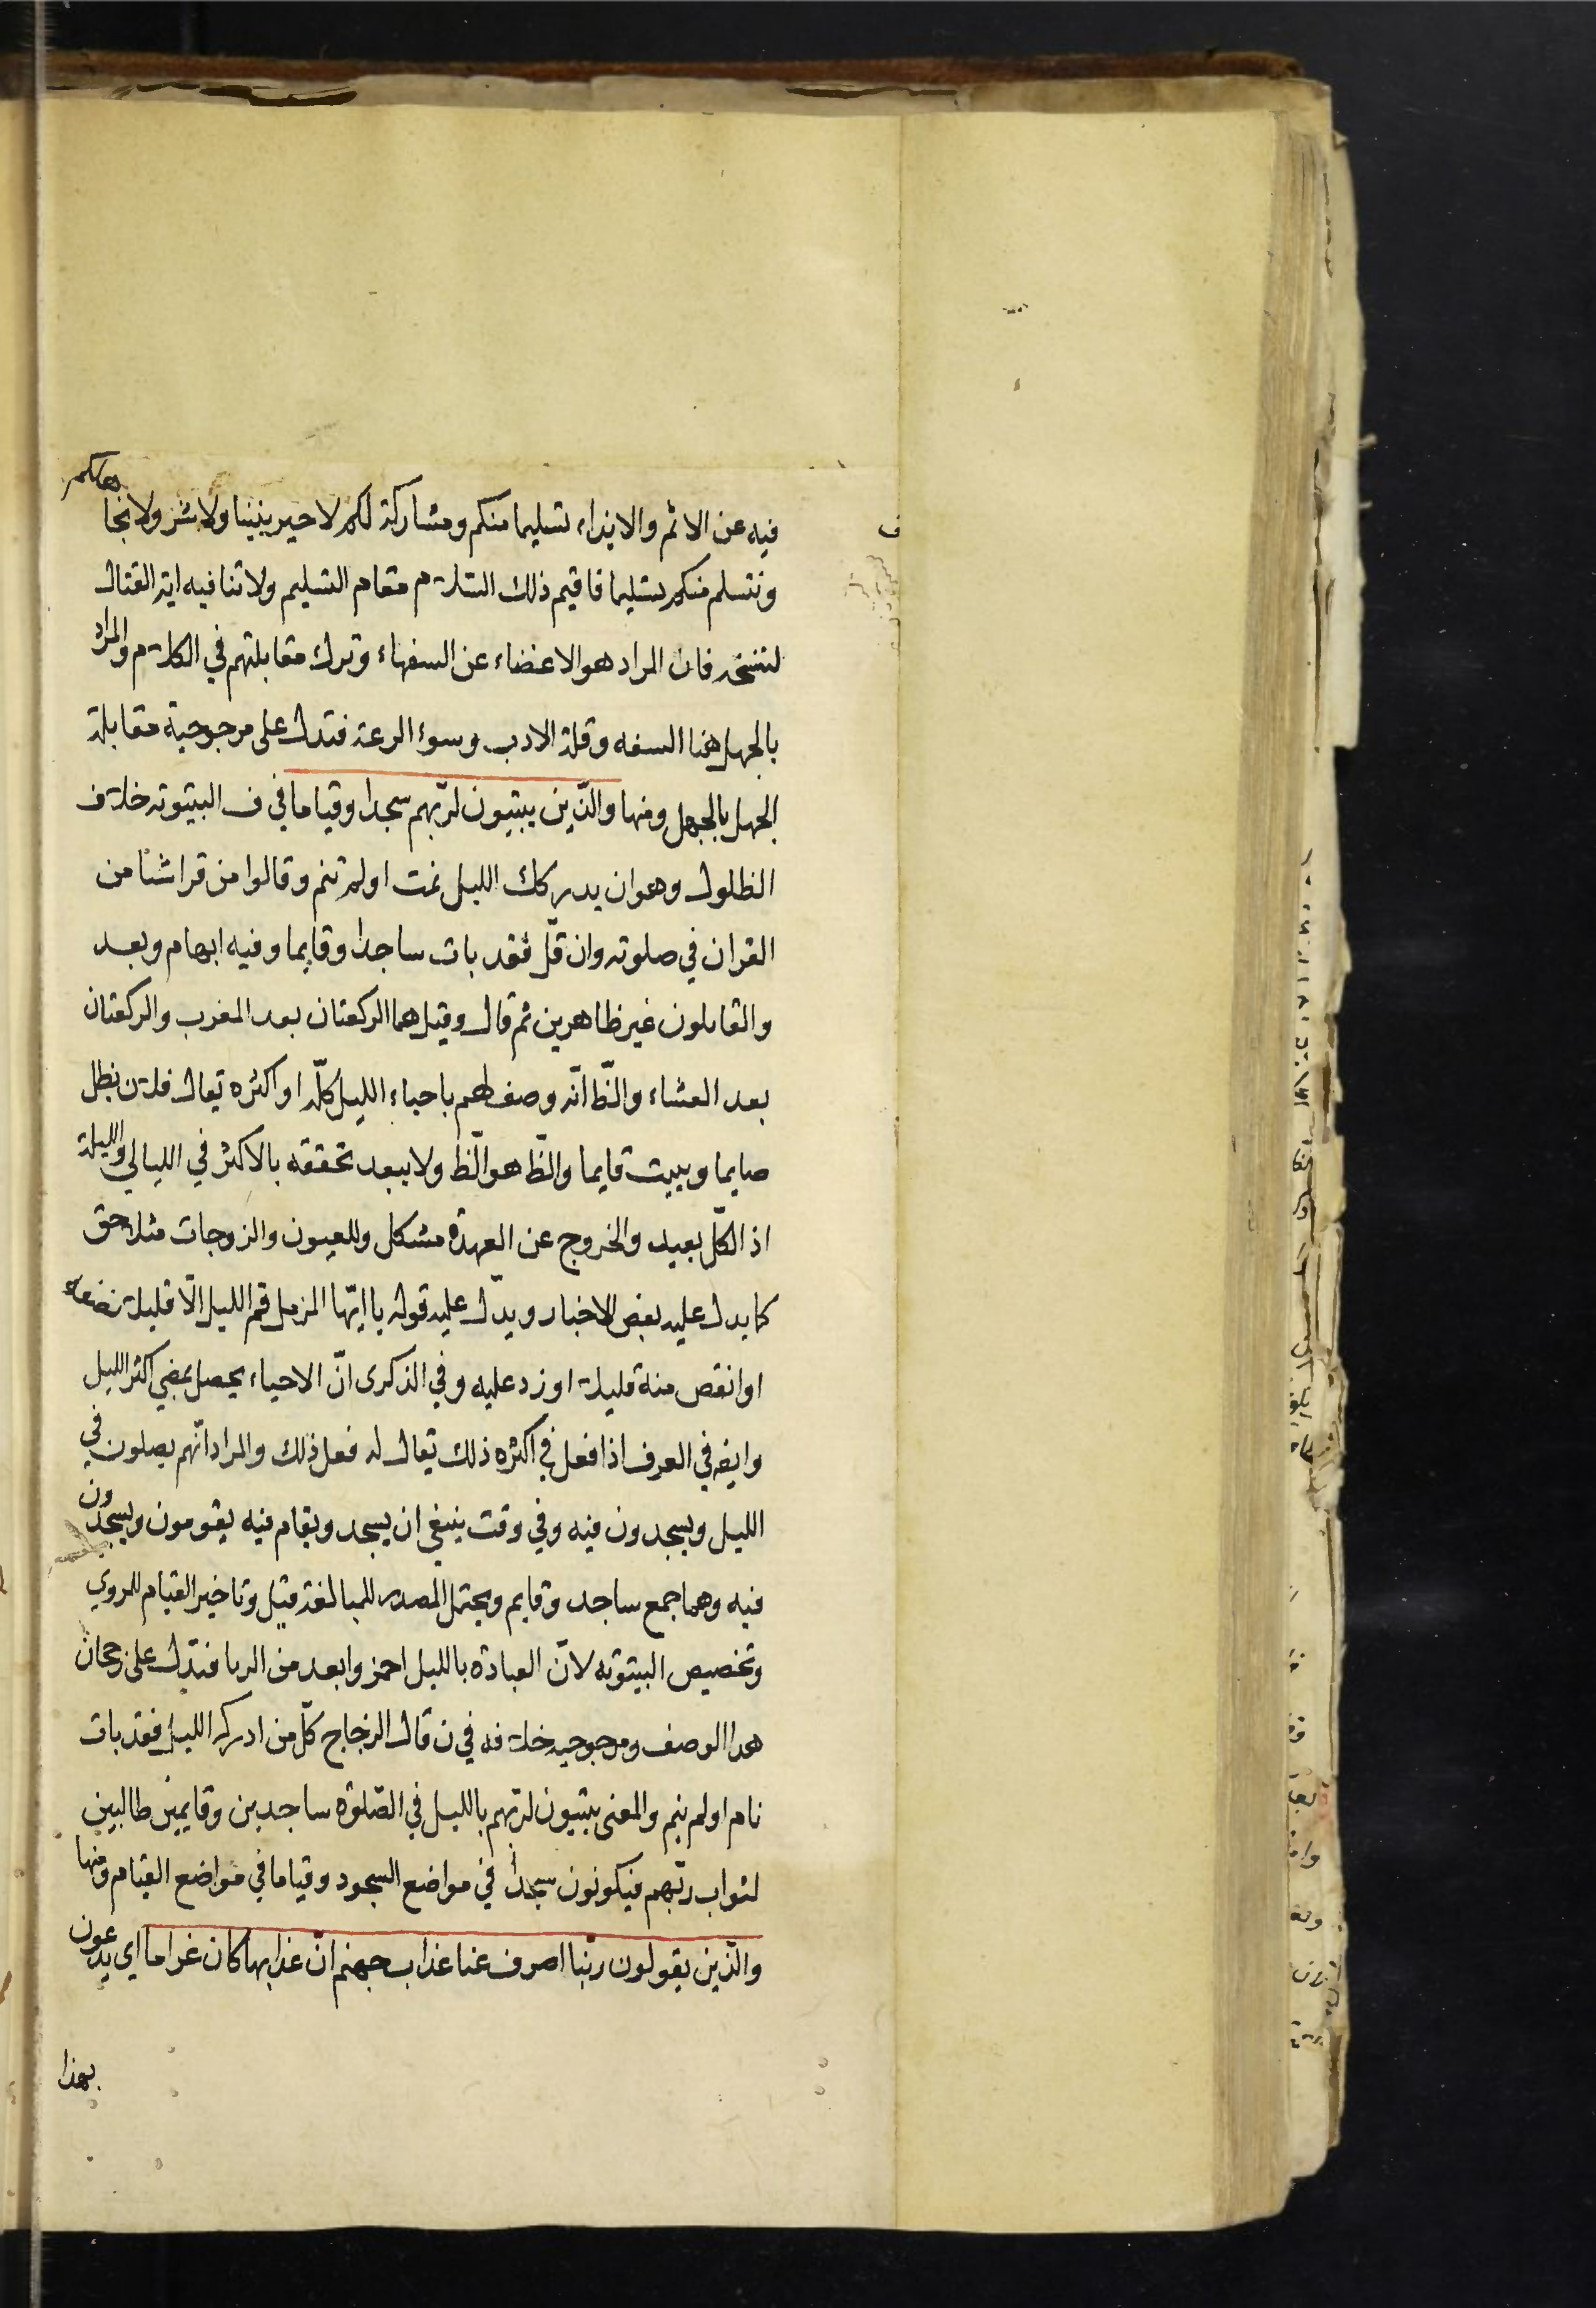 فيه عن الاثم والايذاء تسليما منكم ومشاركة لكم لا خير بيننا ولا شر ولا نجاهلكم
ونتسلم منكم تسليما فاقيم ذلك السلام مقام التسليم ولا تنافيه اية القتال
لتنسخه فان المراد هو الاغضاء عن السفهاء وترك مقابلتهم في الكلام والمراد
بالجهل هنا السفه وقلة الادب وسوء الرعة فتدل على مرجوحية مقابلة
الجهل بالجهل ومنها والذين يبيتون لربهم سجدا وقياما في ف البيتوته خلاف
الظلول وهو ان يدركك الليل نمت اولم تنم وقالوا من قرا شئا من
القران في صلوته وان قل فقد بات ساجدا وقايما وفيه ابهام وبعد
والقايلون غير ظاهرين ثم قال وقيل هما الركعتان بعد المغرب والركعتان
بعد العشاء والظ انه وصف لهم باحياء الليل كله او اكثره يقال فلان يظل
صايما ويبيت قايما والظ هو الظ ولا يبعد تحققه بالاكثر في الليالي والليلة
اذ الكل بعيد والخروج عن العهدة مشكل وللعيون والزوجات مثلا حق
كما يدل عليه بعض الاخبار ويدل عليه قوله يا ايها المزمل قم الليل الا قليلا نصفه
او انقص منه قليلا او زد عليه وفي الذكرى ان الاحياء يحصل بمضي اكثر الليل
وايضه في العرف اذا فعل في اكثره ذلك يقال له فعل ذلك والمراد انهم يصلون في
الليل ويسجدون فيه وفي وقت ينبغي ان يسجد ويقام فيه يقومون ويسجدون
فيه وهما جمع ساجد وقايم ويحتمل المصدر للمبالغة قيل وتاخير القيام للروي
وتخصيص البيتوته لان العبادة بالليل احمز وابعد من الريا فتدل على رجحان
هدا الوصف ومرجوحيه خلافه في ن قال الزجاج كل من ادركه الليل فقد بات
نام اولم ينم والمعنى يبيتون لربهم بالليل في الصلوة ساجدين وقايمين طالبين
لثواب ربهم فيكونون سجدا في مواضع السجود وقياما في مواضع القيام ومنها
والذين يقولون ربنا اصرف عنا عذاب جهنم ان عذابها كان غراما اي يدعون
بهذا